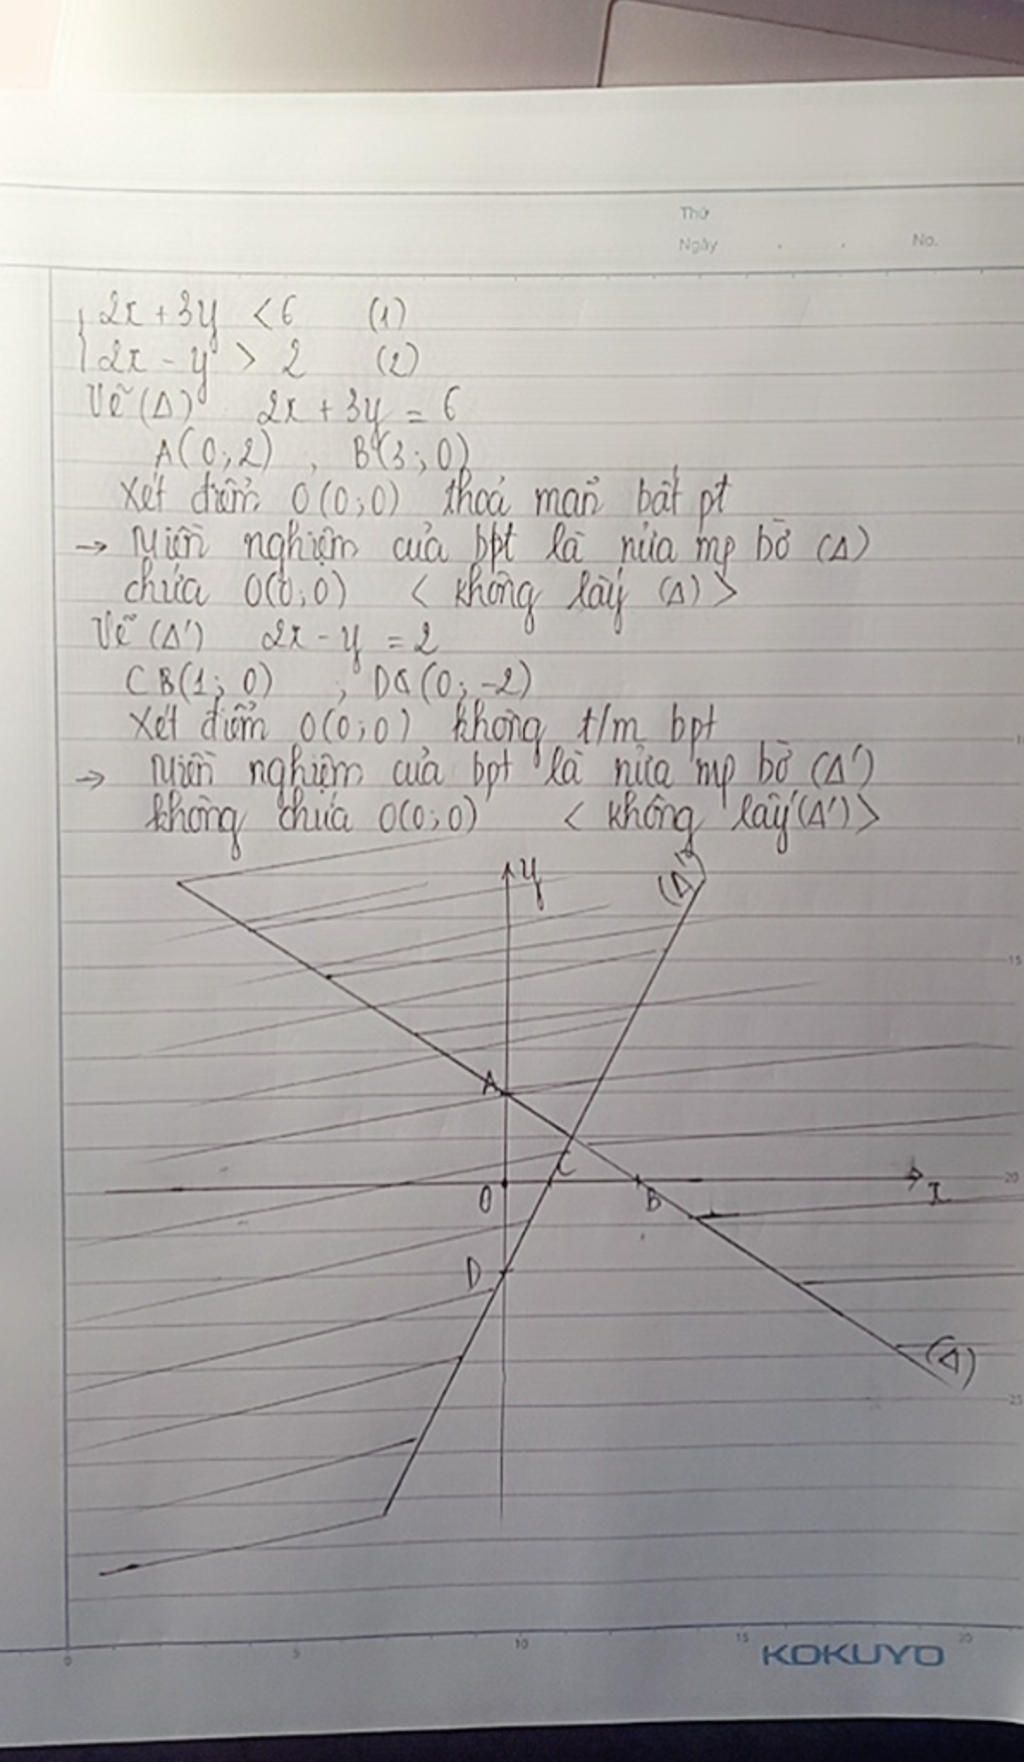 Thứ
Ngày . . No.
{ 2x + 3y < 6 (1)
2x - y > 2 (2)
Vẽ (Δ) 2x + 3y = 6
A(0;2) , B(3;0)
Xét điểm O(0;0) thoả mãn bất pt
→ Miền nghiệm của bpt là nửa mp bờ (Δ)
chứa O(0;0) < không lấy (Δ) >
Vẽ (Δ') 2x - y = 2
C B(1; 0) ; D (0; -2)
Xét điểm O(0;0) không t/m bpt
→ Miền nghiệm của bpt là nửa mp bờ (Δ')
không chứa O(0;0) < không lấy (Δ') >
y (Δ')
15
A
C
O B x 20
D
(Δ)
25
0 5 10 15 20
KOKUYO